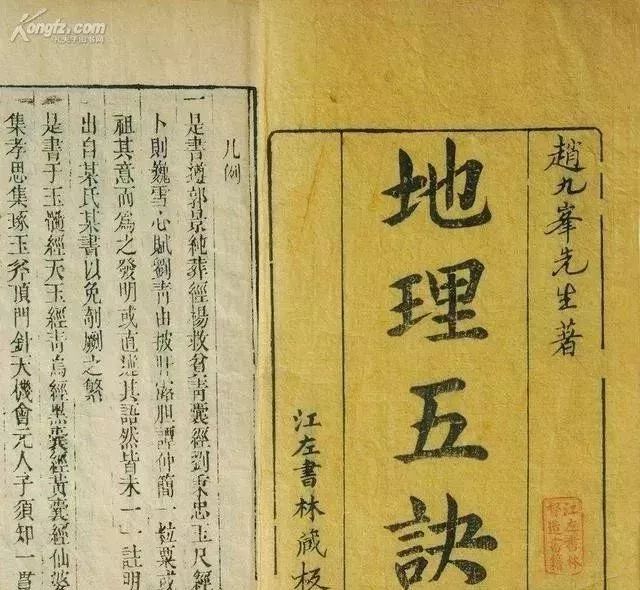 Kongfz.com
孔夫子旧书网
趙九峯先生著
地理五訣
江左書林藏板
江左書林
督造書籍
凡例
一是書遵郭景純葬經楊救貧青囊經劉秉忠玉尺經
卜則巍雪心賦劉青田披肝露胆譚仲簡一粒粟或
祖其意而為之發明或直述其語然皆未一一註明
出自某氏某書以免剞劂之繁
是書于玉髓經天玉經青烏經黑囊經黃囊經仙婆
集孝思集琢玉斧頂門針天機會元人子須知一貫